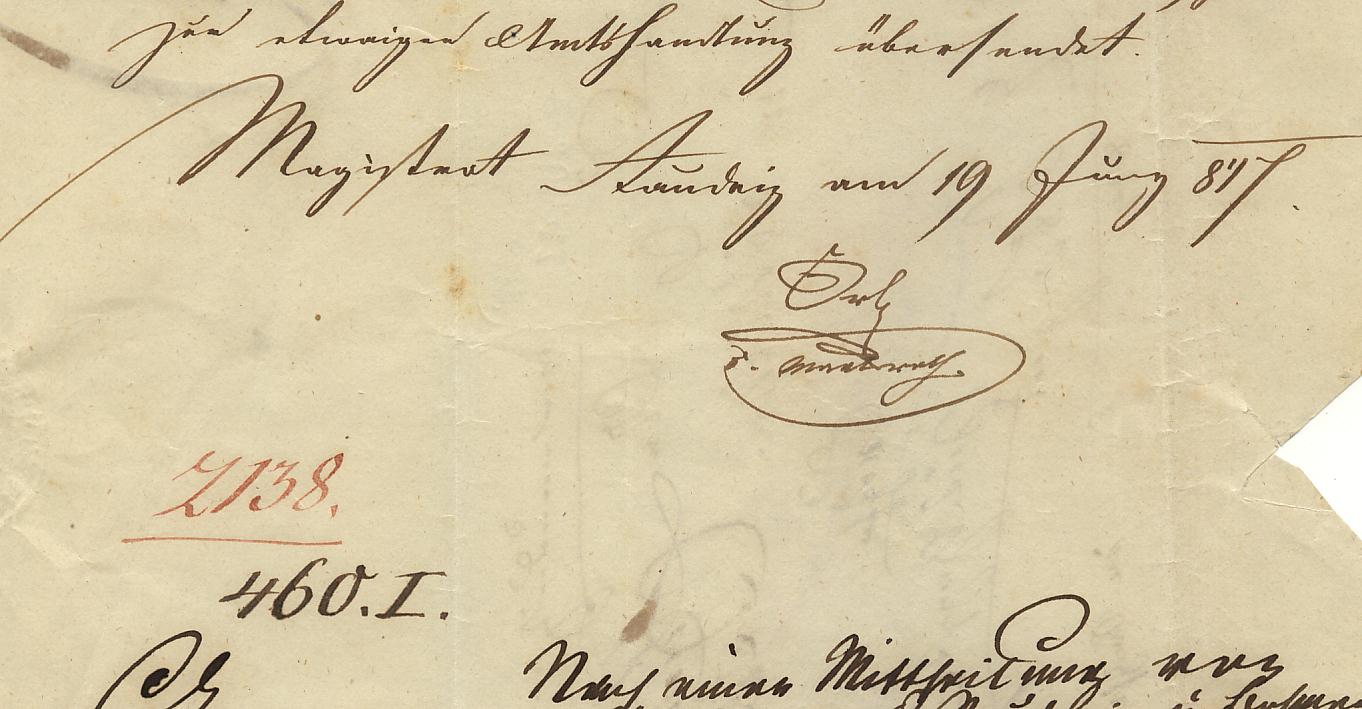 zur etwaigen Amtshandlung übersendet.
Magistrat Staudeig am 19 Juny 847
Orlz
2138.
460. I.
Nach einer Mittheilung von